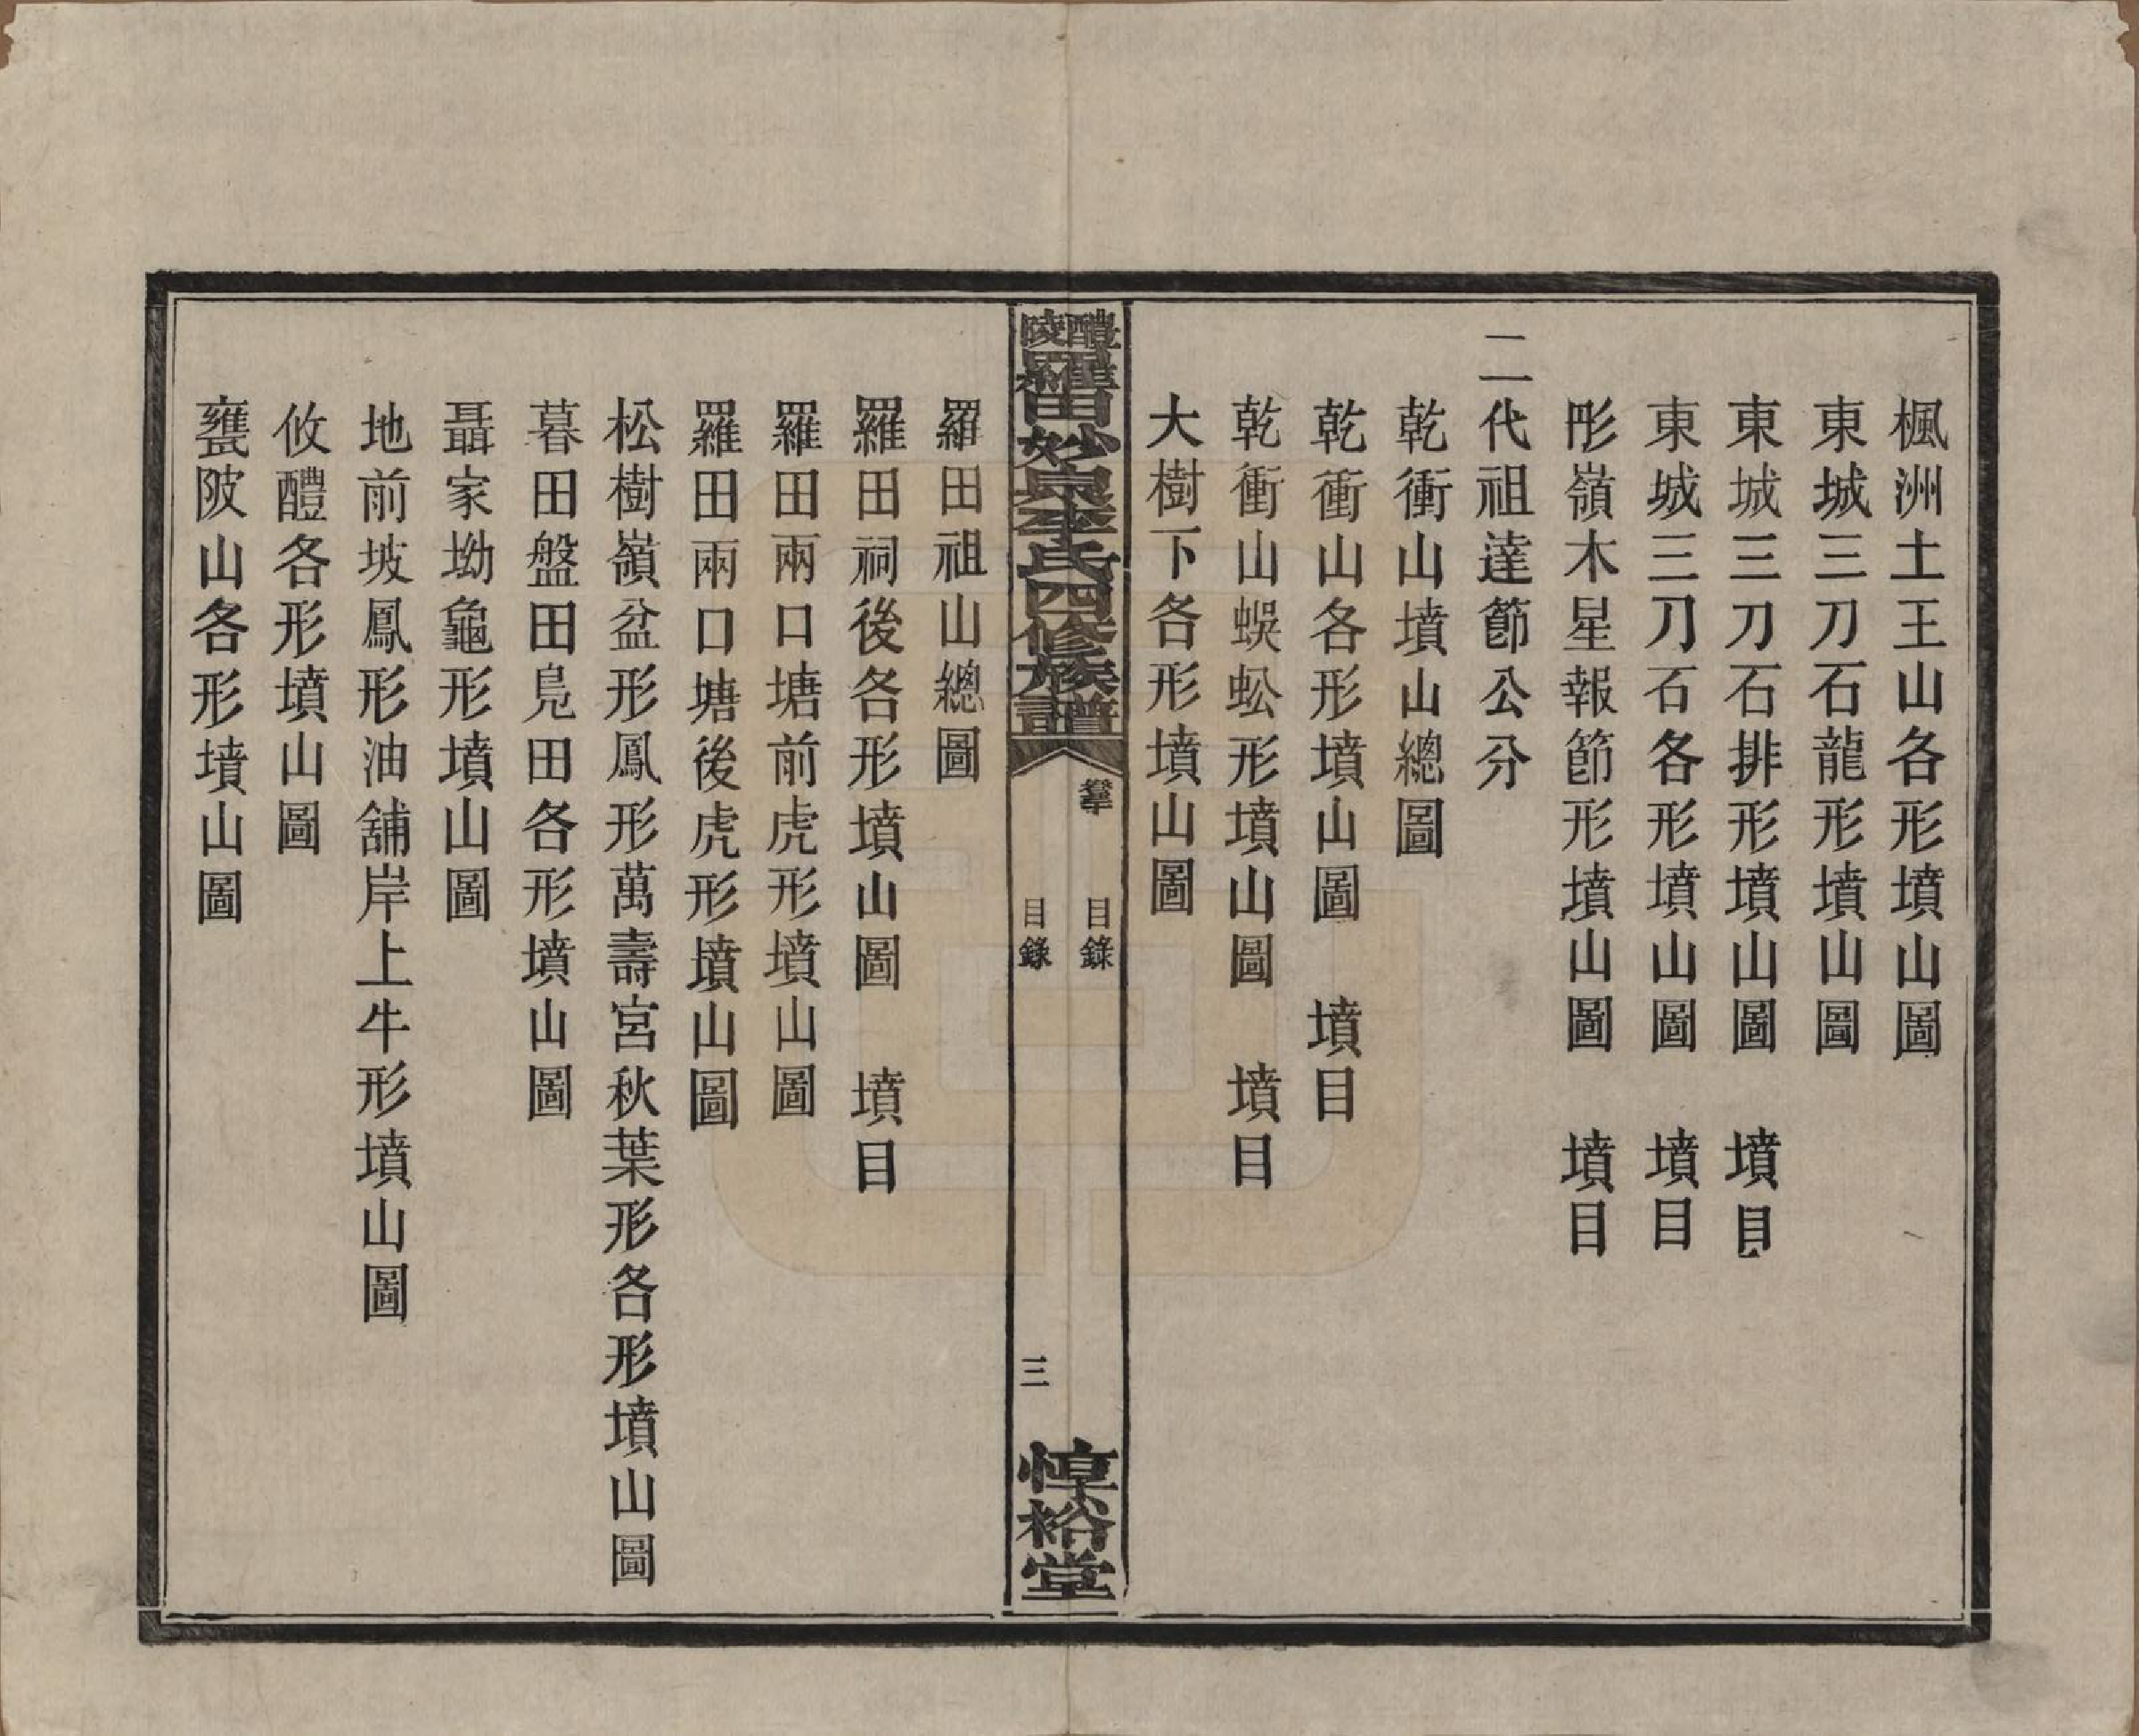 楓洲土王山各形墳山圖
東城三刀石龍形墳山圖
東城三刀石排形墳山圖　墳目
東城三刀石各形墳山圖　墳目
彤嶺木星報節形墳山圖　墳目
二代祖達節公分
乾衝山墳山總圖
乾衝山各形墳山圖　墳目
乾衝山蜈蚣形墳山圖　墳目
大樹下各形墳山圖
醴陵羅田妙泉李氏四修族譜
目錄
目錄
三
惇裕堂
羅田祖山總圖
羅田祠後各形墳山圖　墳目
羅田兩口塘前虎形墳山圖
羅田兩口塘後虎形墳山圖
松樹嶺盆形鳳形萬壽宮秋葉形各形墳山圖
暮田盤田鳧田各形墳山圖
聶家坳龜形墳山圖
地前坡鳳形油舖岸上牛形墳山圖
攸醴各形墳山圖
甕陂山各形墳山圖